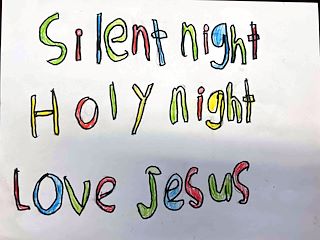 Silent night
Holy night
Love Jesus